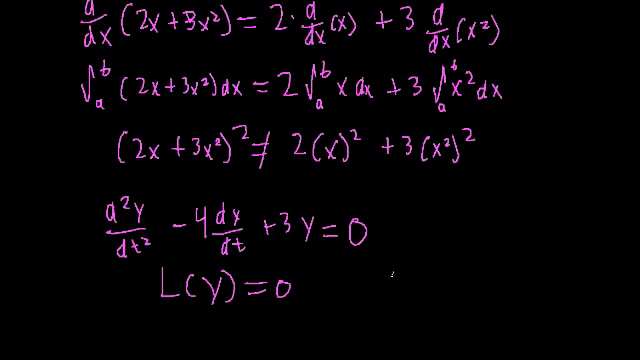 d/dx (2x + 3x²) = 2 · d/dx (x) + 3 d/dx (x²)
∫ₐᵇ (2x + 3x²) dx = 2 ∫ₐᵇ x dx + 3 ∫ₐᵇ x² dx
(2x + 3x²)² ≠ 2(x)² + 3(x²)²
d²y/dt² - 4 dy/dt + 3y = 0
L(y) = 0